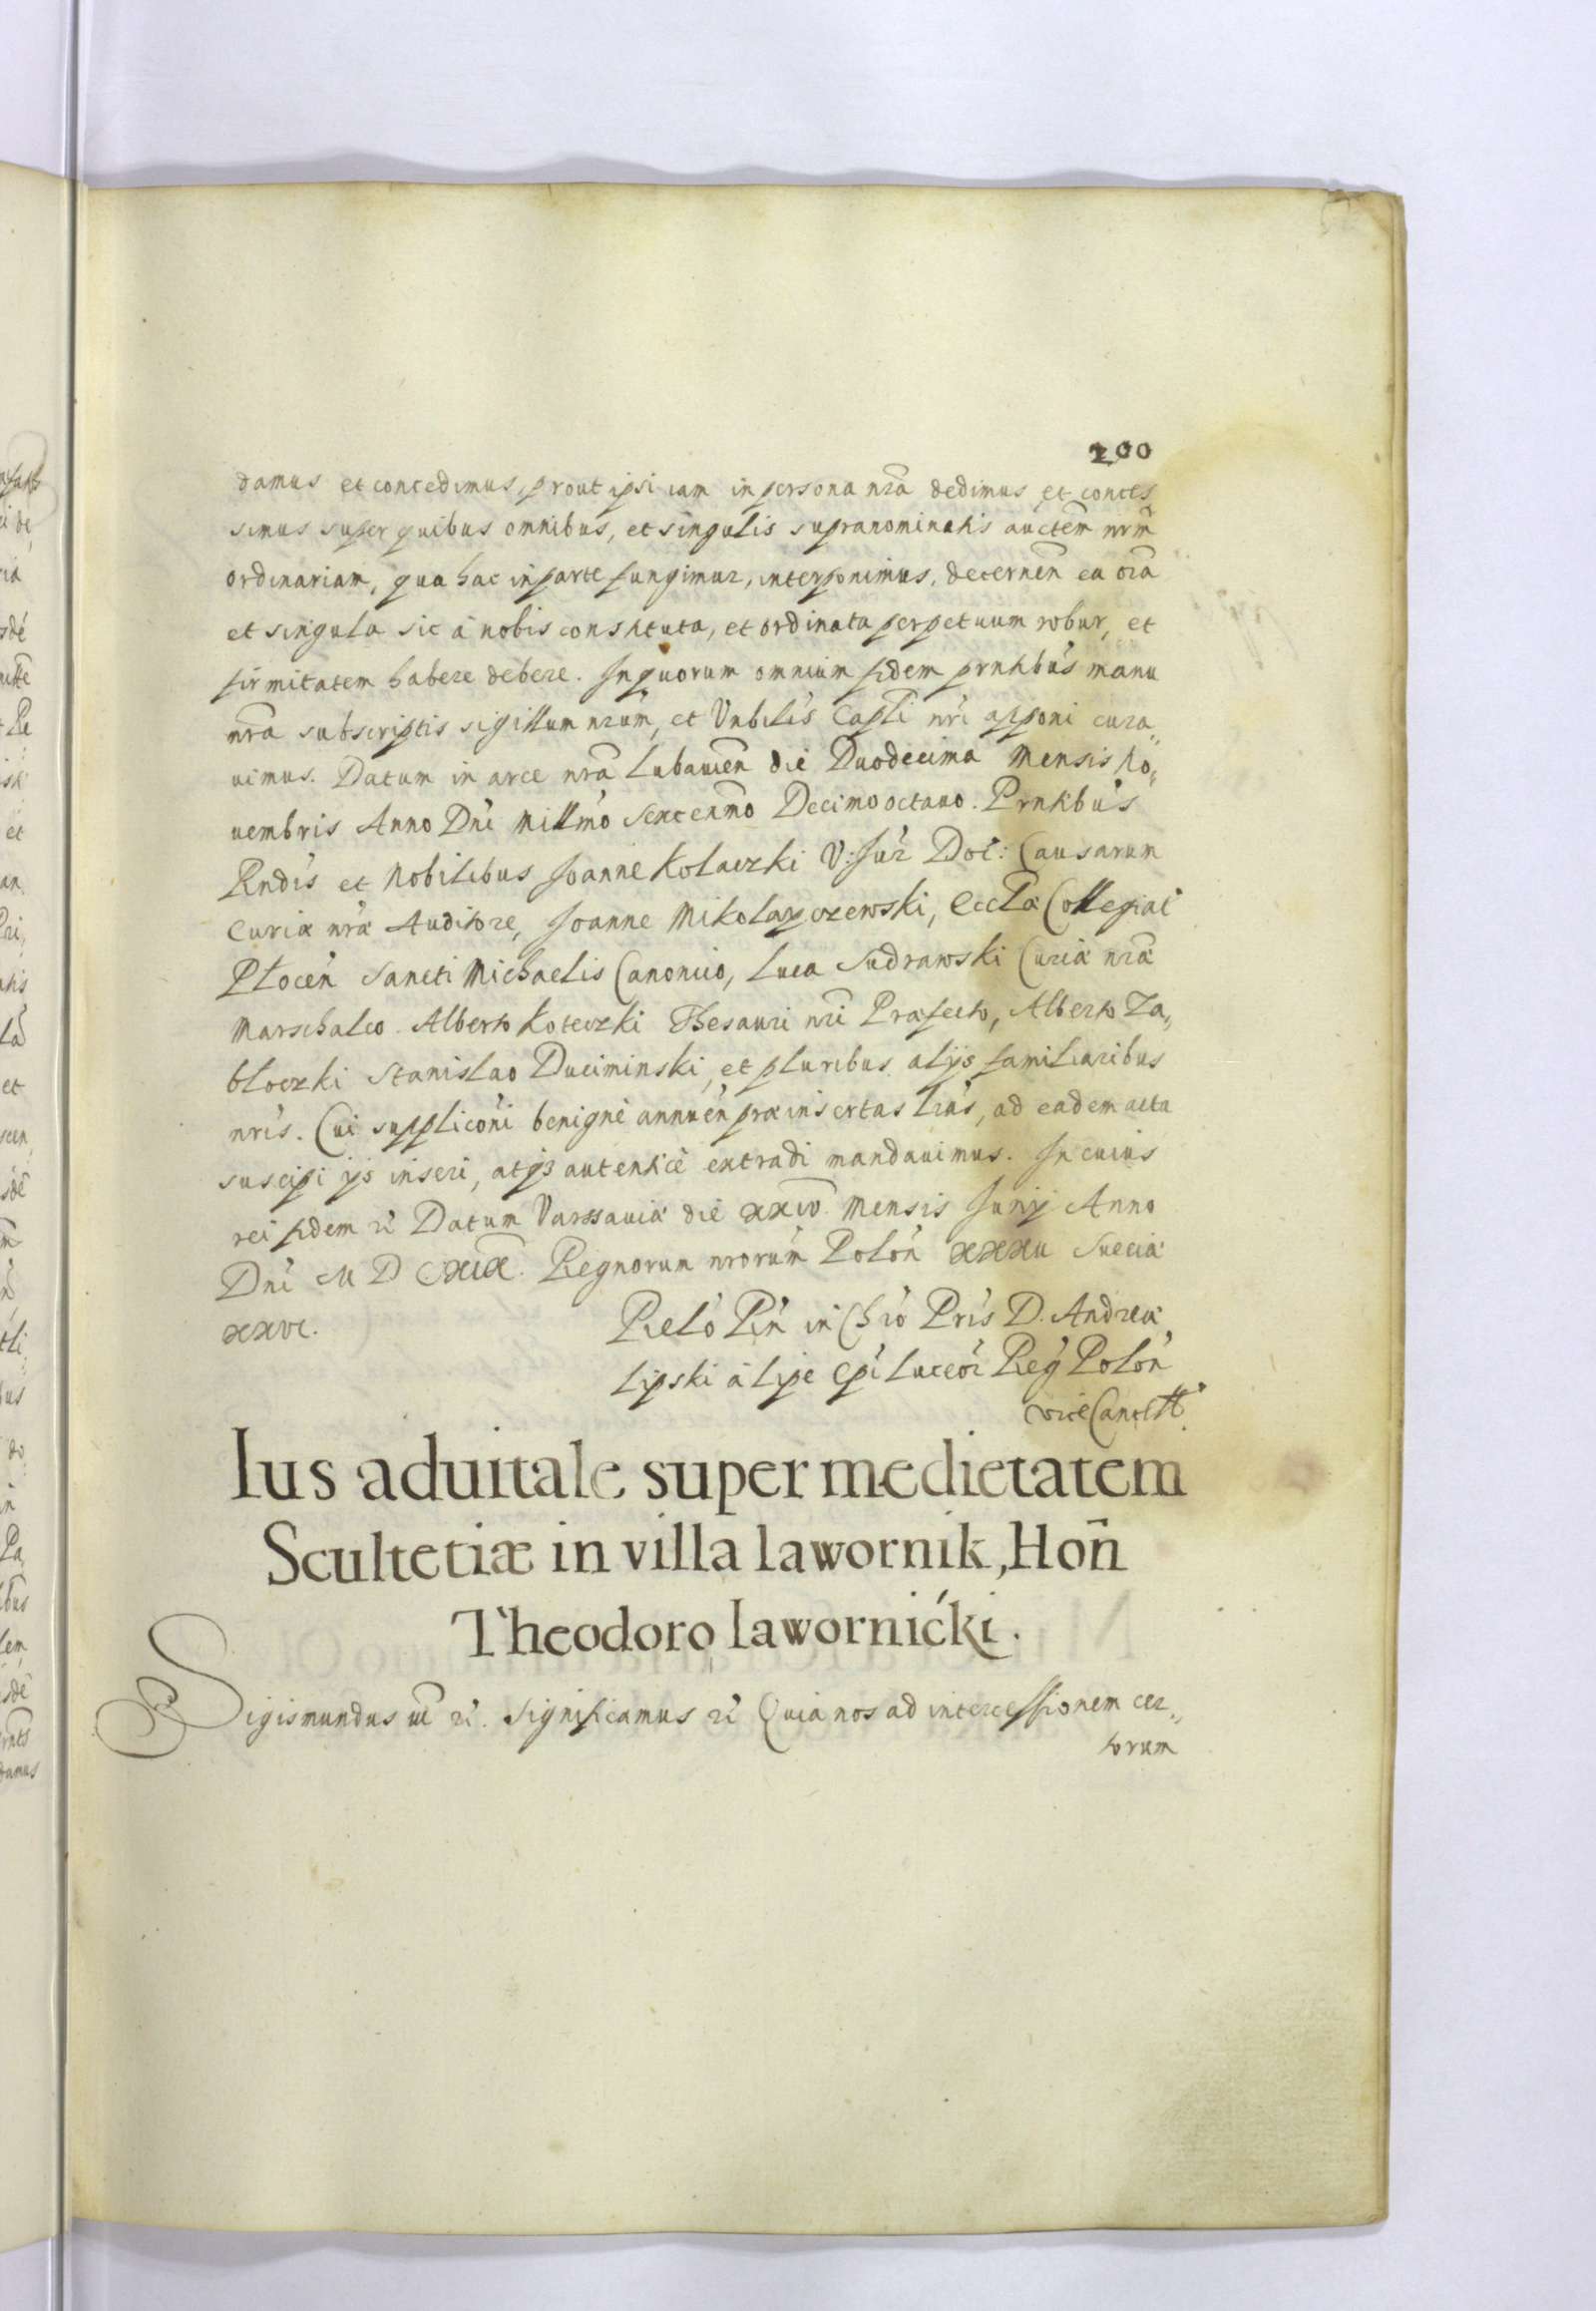 200
damus et concedimus, prout ipsi iam in persona nr̃a dedimus et conces
simus super quibus omnibus, et singulis supranominatis auctem nrm̃
ordinariam, qua hac in parte fungimur, interponimus, decernen̄ ea oĩa
et singula sic à nobis constituta, et ordinata perpetuum robur, et
firmitatem habere debere. In quorum omnium fidem prntibus manu
nrã subscriptis sigillum nrum, et Vnbilis Capli nri apponi cura„
uimus. Datum in arce nrã Lubauien̄ die Duodecima Mensis No„
uembris Anno Dni Millmo sexcenmo Decimo octauo. Prntibus
Rndis et Nobilibus Joanne Kolaczki V: Jur Doc: Causarum
Curiæ nræ Auditore, Joanne Mikolayczewski, Eccliæ Collegiat
Plocen̄ Sancti Michaelis Canonico, Luca Sudrawski Curiæ nræ
Marschalco. Alberto Koteczki Thesauri nri Præfecto, Alberto Za„
bloczki Stanislao Duciminski, et pluribus alijs familiaribus
nris. Cui supplicõni benignè annuen̄ præinsertas lras, ad eadem acta
suscipi ijs inseri, atq3 autenticè extradi mandauimus. In cuius
rei fidem rc̃ Datum Varssauiæ die xxiv. Mensis Junij Anno
Dni M D CXIX. Regnorum nrorum Polon̄ xxxii Sueciæ
xxvi.
Relo Rn̄ in Chro Pris D. Andreæ
Lipski à Lipe Epi Luceor̄ Reg Polon̄
viceCancell̃.
Ius aduitale super medietatem
Scultetiæ in villa Iawornik, Hon̄
Theodoro Iawornićki.
Sigismundus iii rc̃. Significamus rc̃ Quia nos ad intercessionem cer„
torum